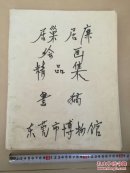 居巢居廉
绘画集
精品
书稿
东莞市博物馆